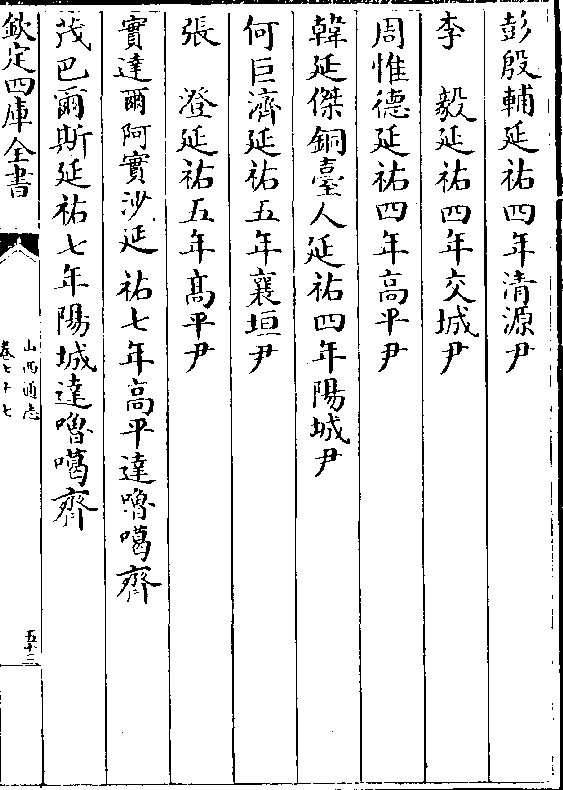 彭殷輔延祐四年清源尹
李　毅延祐四年交城尹
周惟德延祐四年高平尹
韓延傑銅臺人延祐四年陽城尹
何巨濟延祐五年襄垣尹
張　澄延祐五年髙平尹
實達爾阿實沙延祐七年高平達嚕噶齊
茂巴爾斯延祐七年陽城達嚕噶齊
欽定四庫全書
山西通志
卷七十七
五十三